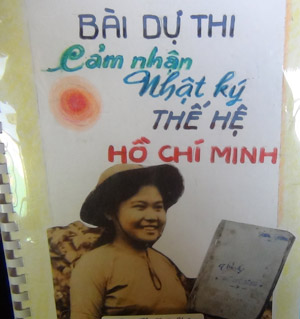 BÀI DỰ THI
Cảm nhận
Nhật ký
THẾ HỆ
HỒ CHÍ MINH